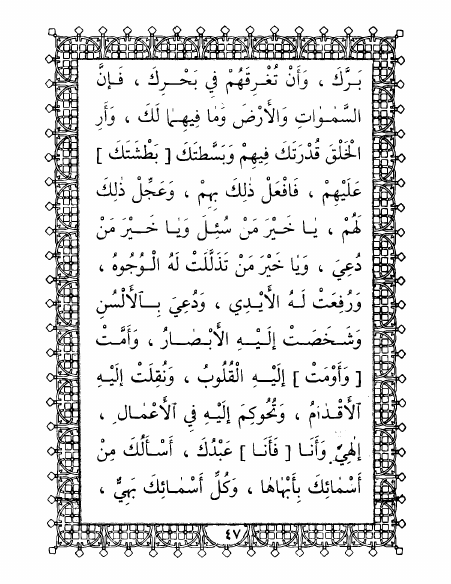 بَرَّكَ ، وَأَنْ تُغْرِقَهُمْ فِي بَحْرِكَ ، فَإِنَّ
السَّمٰوَاتِ وَالْأَرْضَ وَمٰا فِيهِمٰا لَكَ ، وَأَرِ
الْخَلْقَ قُدْرَتَكَ فِيهِمْ وَبَسْطَتَكَ [ بَطْشَتَكَ ]
عَلَيْهِمْ ، فَافْعَلْ ذٰلِكَ بِهِمْ ، وَعَجِّلْ ذٰلِكَ
لَهُمْ ، يٰا خَيْرَ مَنْ سُئِلَ وَيٰا خَيْرَ مَنْ
دُعِيَ ، وَيٰا خَيْرَ مَنْ تَذَلَّلَتْ لَهُ الْوُجُوهُ ،
وَرُفِعَتْ لَهُ الْأَيْدِي ، وَدُعِيَ بِالْأَلْسُنِ
وَشَخَصَتْ إِلَيْهِ الْأَبْصٰارُ ، وَأَمَّتْ
[ وَأَوْمَتْ ] إِلَيْهِ الْقُلُوبُ ، وَنُقِلَتْ إِلَيْهِ
الْأَقْدٰامُ ، وَتُحُوكِمَ إِلَيْهِ فِي الْأَعْمٰالِ ،
إِلٰهِي وَأَنَا [ فَأَنَا ] عَبْدُكَ ، أَسْأَلُكَ مِنْ
أَسْمٰائِكَ بِأَبْهٰاهٰا ، وَكُلُّ أَسْمٰائِكَ بَهِيٌّ ،
٤٧